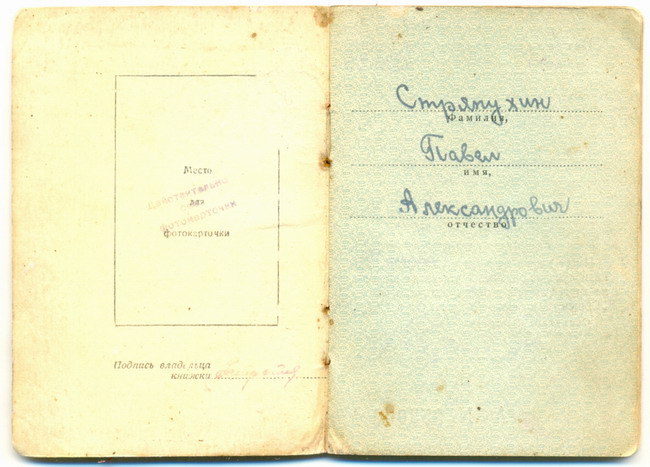 Место
для
фотокарточки
Действительно
фотокарточки
Подпись владельца
книжки
Стряпухин
Фамилия,
Павел
имя,
Александрович
отчество